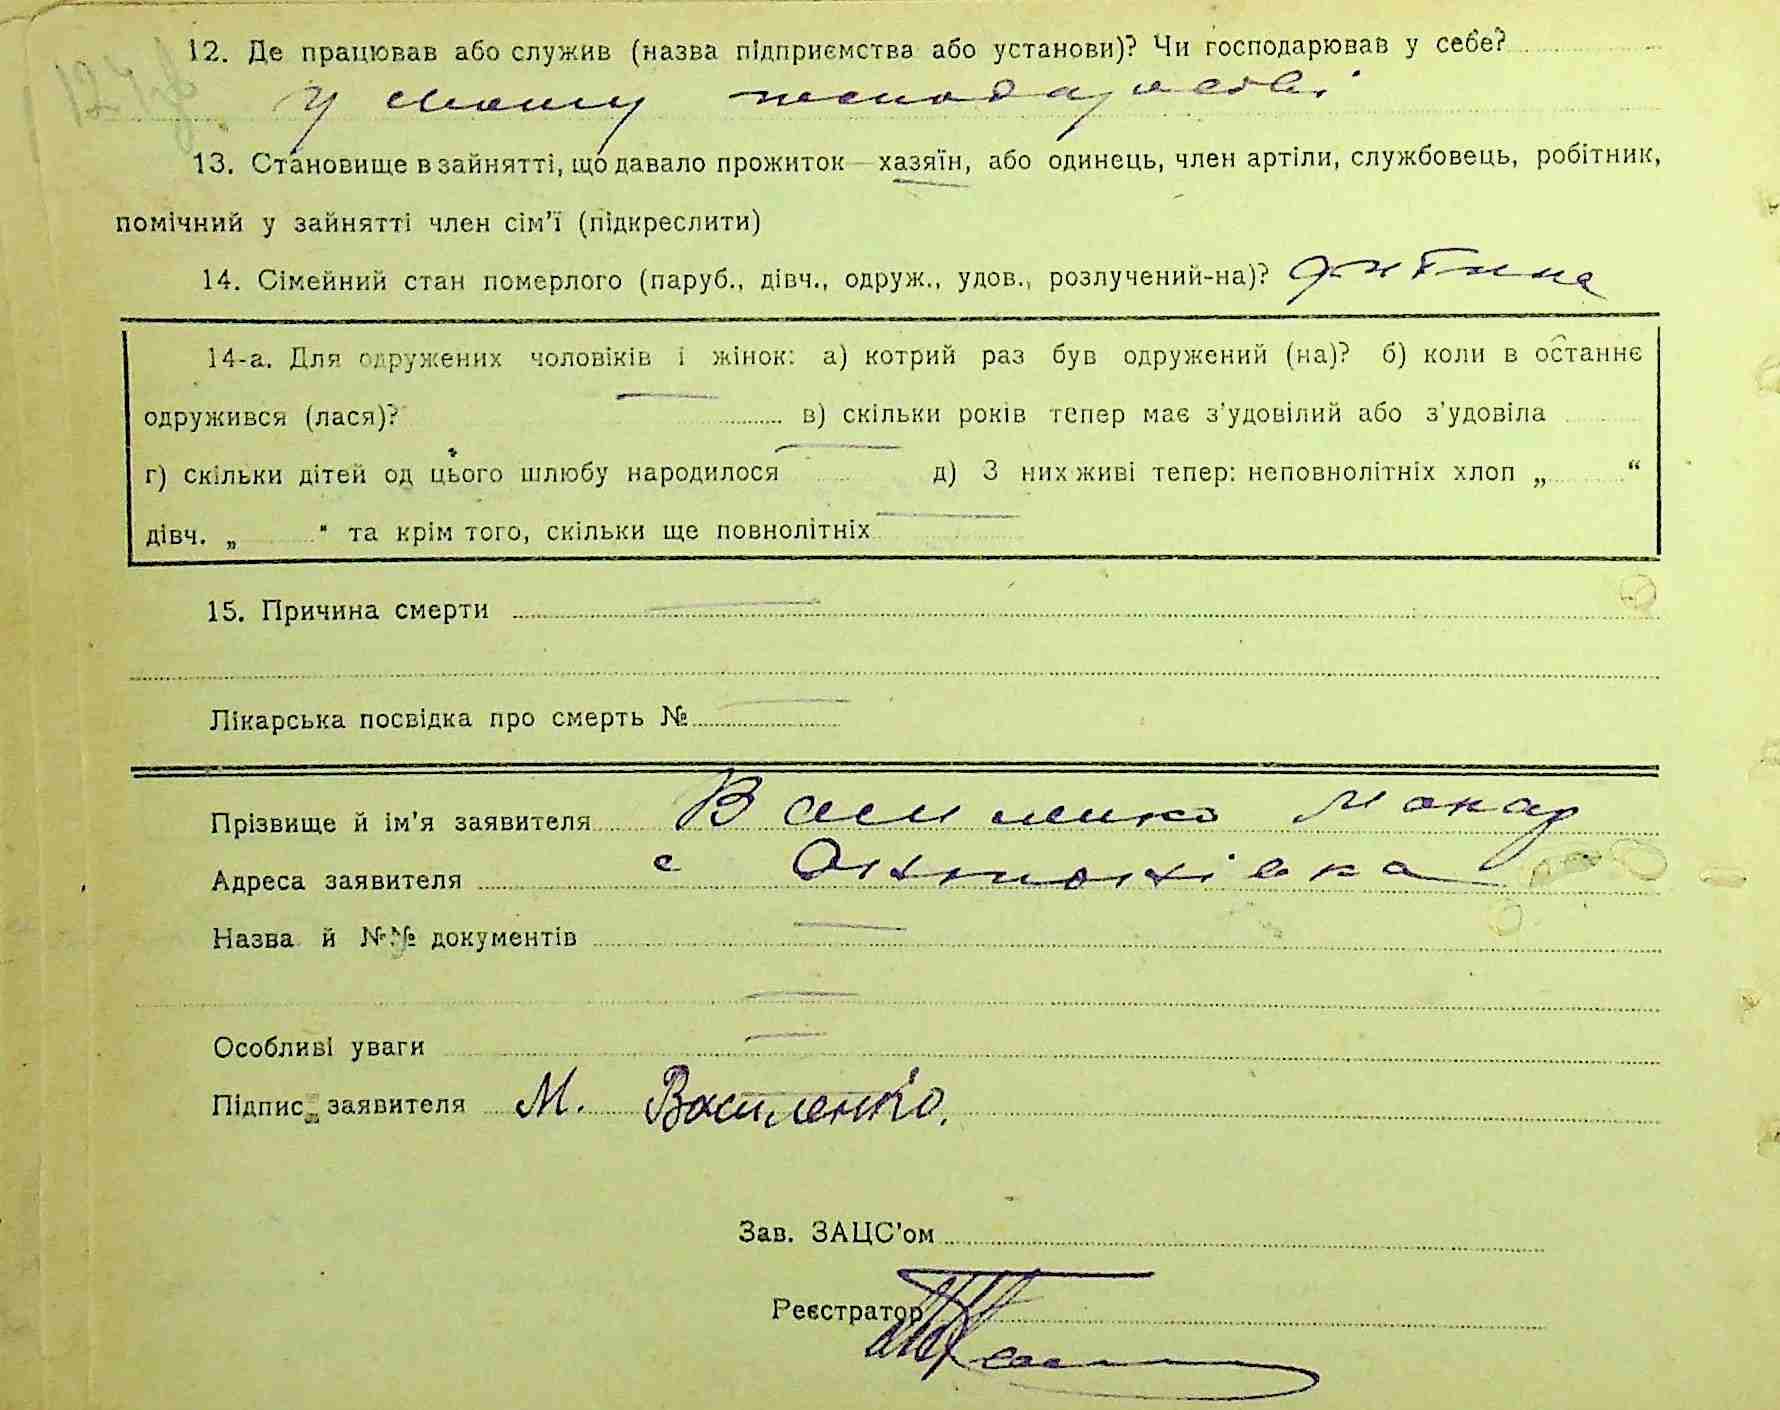 12. Де працював або служив (назва підприємства або установи)? Чи господарював у себе?
У своему господарстві.
13. Становище в зайнятті, що давало прожиток—хазяїн, або одинець, член артіли, службовець, робітник,
помічний у зайнятті член сім'ї (підкреслити)
14. Сімейний стан померлого (паруб., дівч., одруж., удов., розлучений-на)? дитина
14-а. Для одружених чоловіків і жінок: а) котрий раз був одружений (на)? б) коли в останнє
одружився (лася)? в) скільки років тепер має з'удовілий або з'удовіла
г) скільки дітей од цього шлюбу народилося д) З них живі тепер: неповнолітніх хлоп „ “
дівч. „ “ та крім того, скільки ще повнолітніх
15. Причина смерти
Лікарська посвідка про смерть №
Прізвище й ім'я заявителя Василенко Макар
Адреса заявителя с Антонівка
Назва й №№ документів
Особливі уваги
Підпис заявителя М. Василенко.
Зав. ЗАЦС'ом
Реєстратор